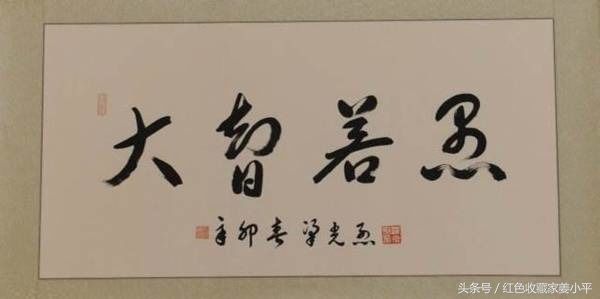 大智若愚
辛卯春梁光烈
头条号 / 红色收藏家姜小平